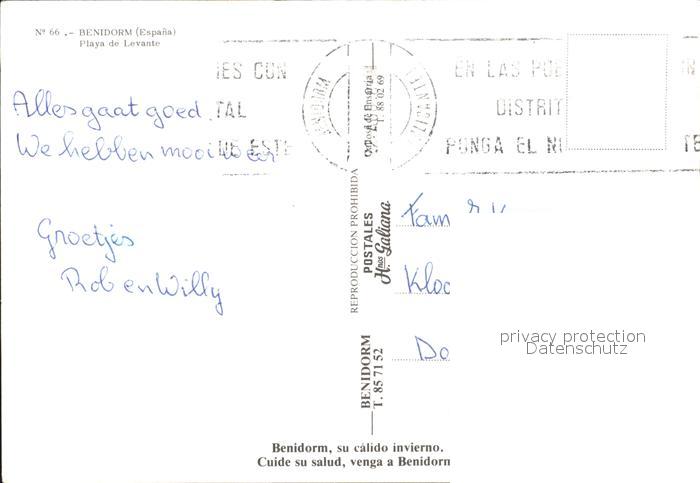 Nº 66 .- BENIDORM (España)
Playa de Levante
Alles gaat goed.
We hebben mooi weer
Groetjes
Rob en Willy
ES CON
TAL
ESTE
BENIDORM
ALICANTE
EN LAS
DISTRIT
PONGA EL
REPRODUCCION PROHIBIDA
POSTALES
Hnos Galiana
BENIDORM
T. 85 71 52
T. 88 02 69
Fam
Kloo
Do
privacy protection
Datenschutz
Benidorm, su cálido invierno.
Cuide su salud, venga a Benidorm